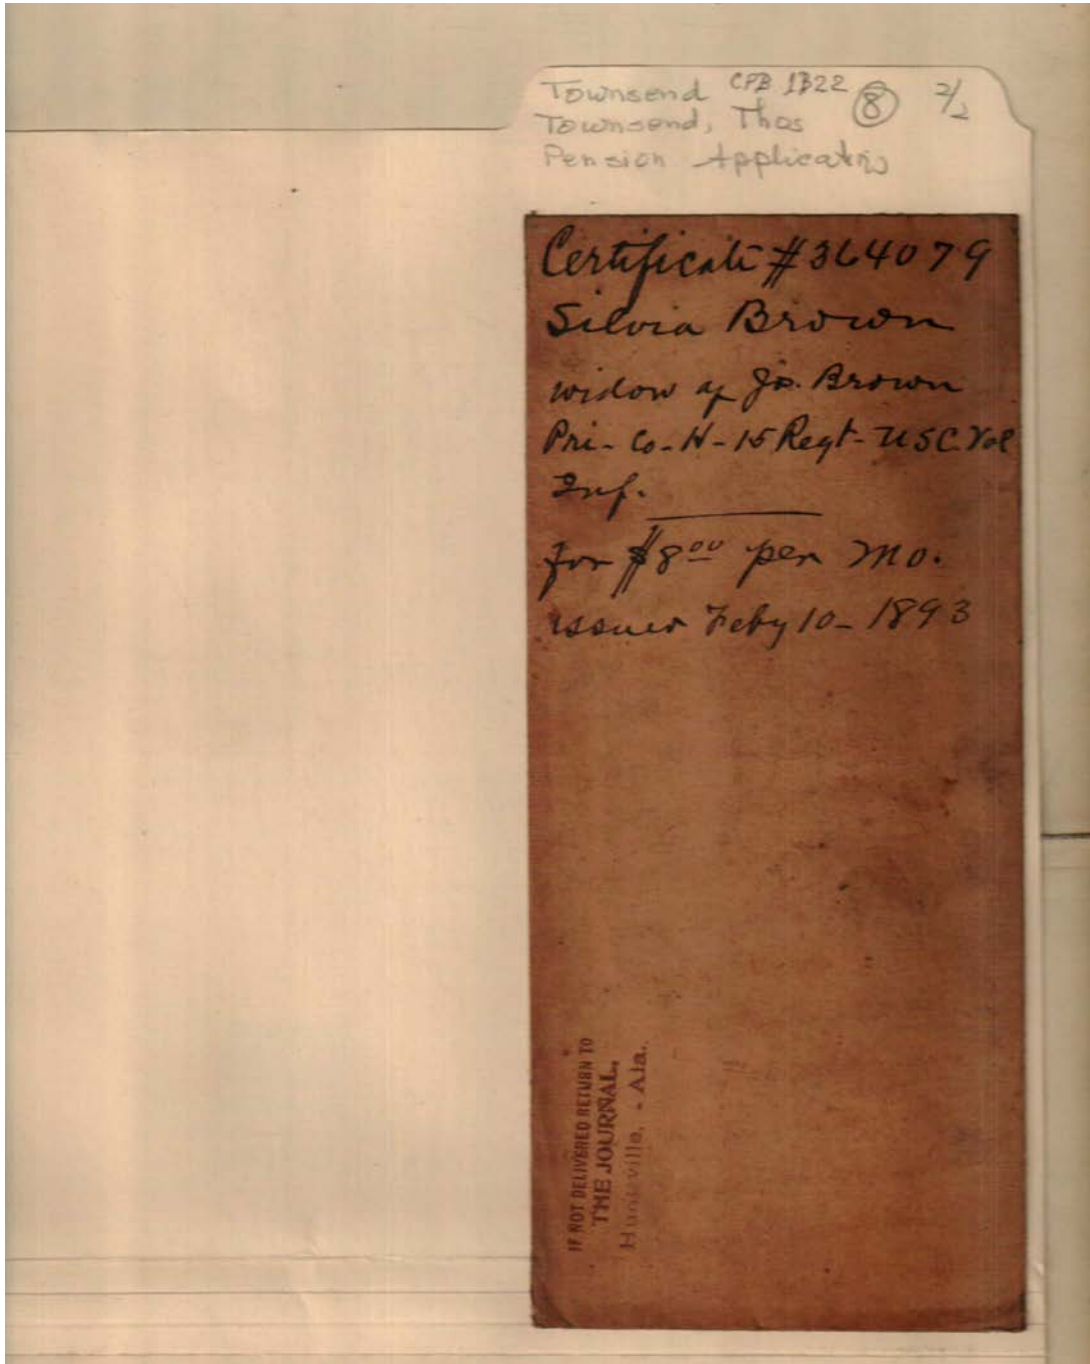 Townsend CPB 1B22 (8) 2/2
Townsend, Thos
Pension Applications
Certificate #364079
Silvia Brown
widow of Js. Brown
Pri-Co-H-15 Regt-USC.Vol
Inf.
for $8.00 per Mo.
issued Feby 10-1893
IF NOT DELIVERED RETURN TO
THE JOURNAL,
Huntsville, - Ala.